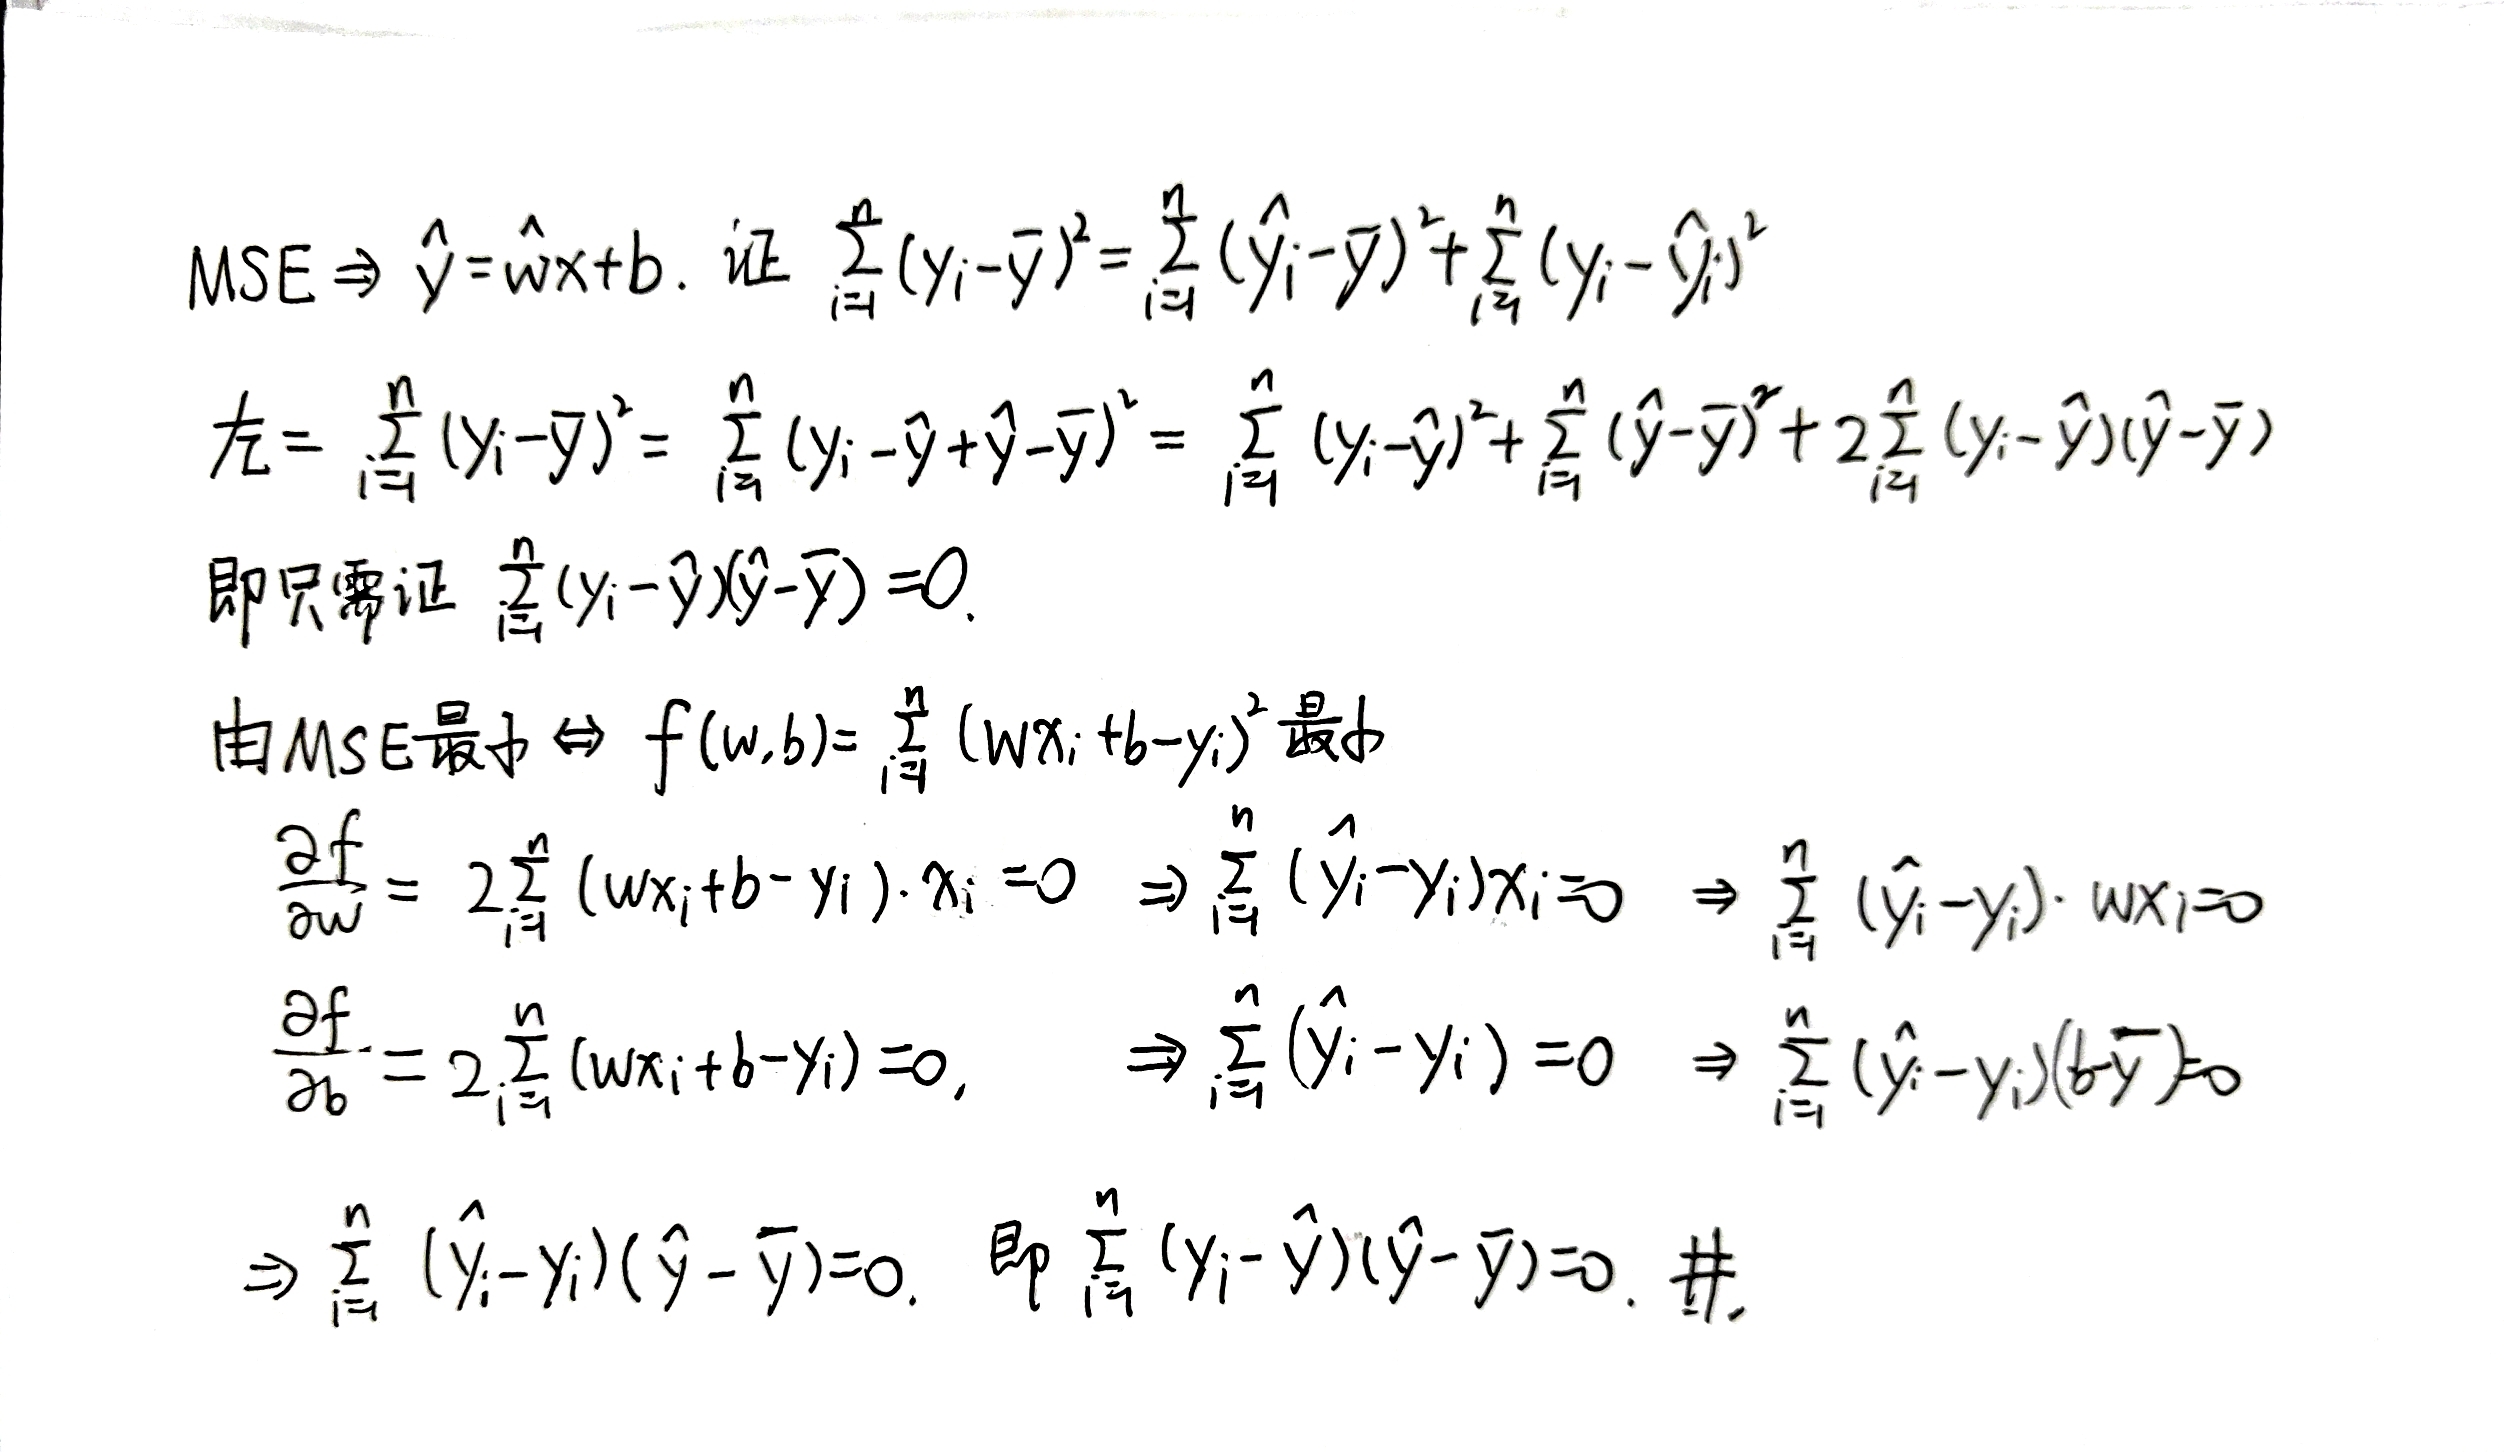 MSE ⇒ ŷ=ŵx+b. 证 ∑_{i=1}^{n}(y_i-ȳ)²=∑_{i=1}^{n}(ŷ_i-ȳ)²+∑_{i=1}^{n}(y_i-ŷ_i)²
左=∑_{i=1}^{n}(y_i-ȳ)²=∑_{i=1}^{n}(y_i-ŷ+ŷ-ȳ)²=∑_{i=1}^{n}(y_i-ŷ)²+∑_{i=1}^{n}(ŷ-ȳ)²+2∑_{i=1}^{n}(y_i-ŷ)(ŷ-ȳ)
即只需证 ∑_{i=1}^{n}(y_i-ŷ)(ŷ-ȳ)=0.
由MSE最小 ⇔ f(w,b)=∑_{i=1}^{n}(wx_i+b-y_i)²最小
∂f/∂w=2∑_{i=1}^{n}(wx_i+b-y_i)·x_i=0 ⇒ ∑_{i=1}^{n}(ŷ_i-y_i)x_i=0 ⇒ ∑_{i=1}^{n}(ŷ_i-y_i)·wx_i=0
∂f/∂b=2∑_{i=1}^{n}(wx_i+b-y_i)=0, ⇒ ∑_{i=1}^{n}(ŷ_i-y_i)=0 ⇒ ∑_{i=1}^{n}(ŷ_i-y_i)(b-ȳ)=0
⇒ ∑_{i=1}^{n}(ŷ_i-y_i)(ŷ-ȳ)=0. 即 ∑_{i=1}^{n}(y_i-ŷ)(ŷ-ȳ)=0. #.